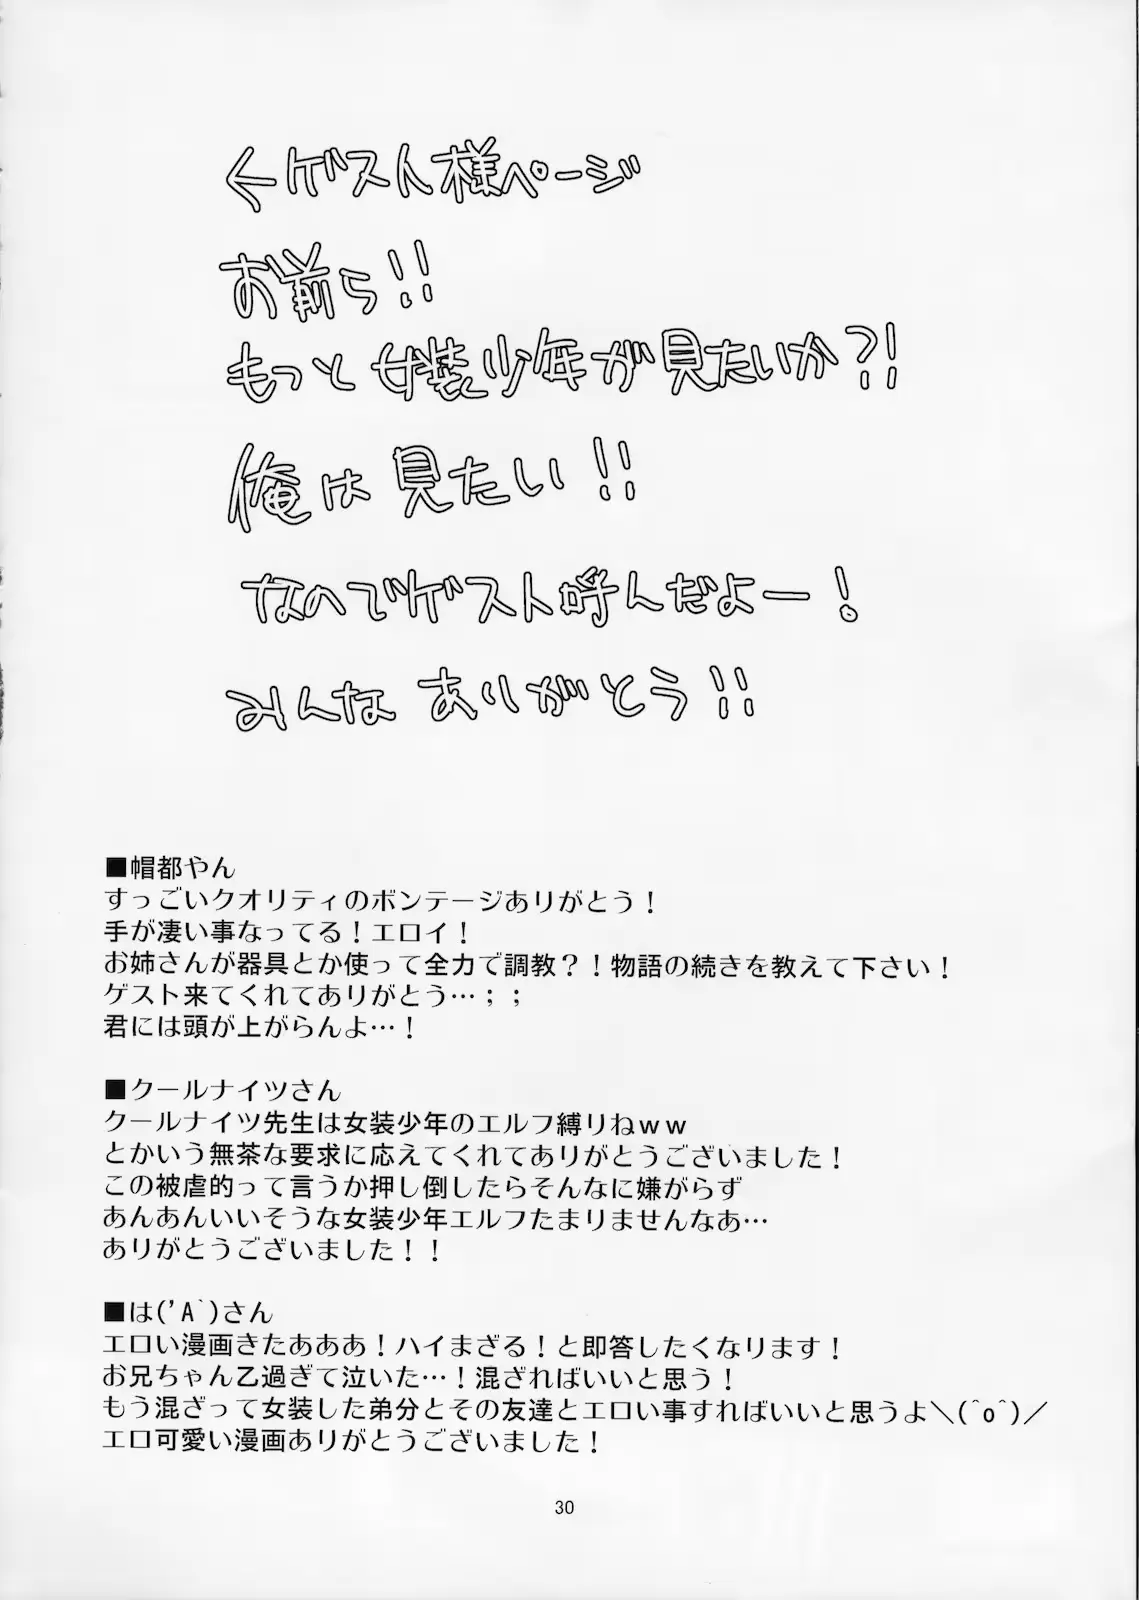 ←ゲスト様ページ
お前ら!!
もっと女装少年が見たいか?!
俺は見たい!!
なのでゲスト呼んだよー!
みんな ありがとう!!
■帽都やん
すっごいクオリティのボンテージありがとう！
手が凄い事なってる！エロイ！
お姉さんが器具とか使って全力で調教？！物語の続きを教えて下さい！
ゲスト来てくれてありがとう…；；
君には頭が上がらんよ…！
■クールナイツさん
クールナイツ先生は女装少年のエルフ縛りねｗｗ
とかいう無茶な要求に応えてくれてありがとうございました！
この被虐的って言うか押し倒したらそんなに嫌がらず
あんあんいいそうな女装少年エルフたまりませんなあ…
ありがとうございました！！
■は('A`)さん
エロい漫画きたあああ！ハイまざる！と即答したくなります！
お兄ちゃん乙過ぎて泣いた…！混ざればいいと思う！
もう混ざって女装した弟分とその友達とエロい事すればいいと思うよ＼(^o^)／
エロ可愛い漫画ありがとうございました！
30